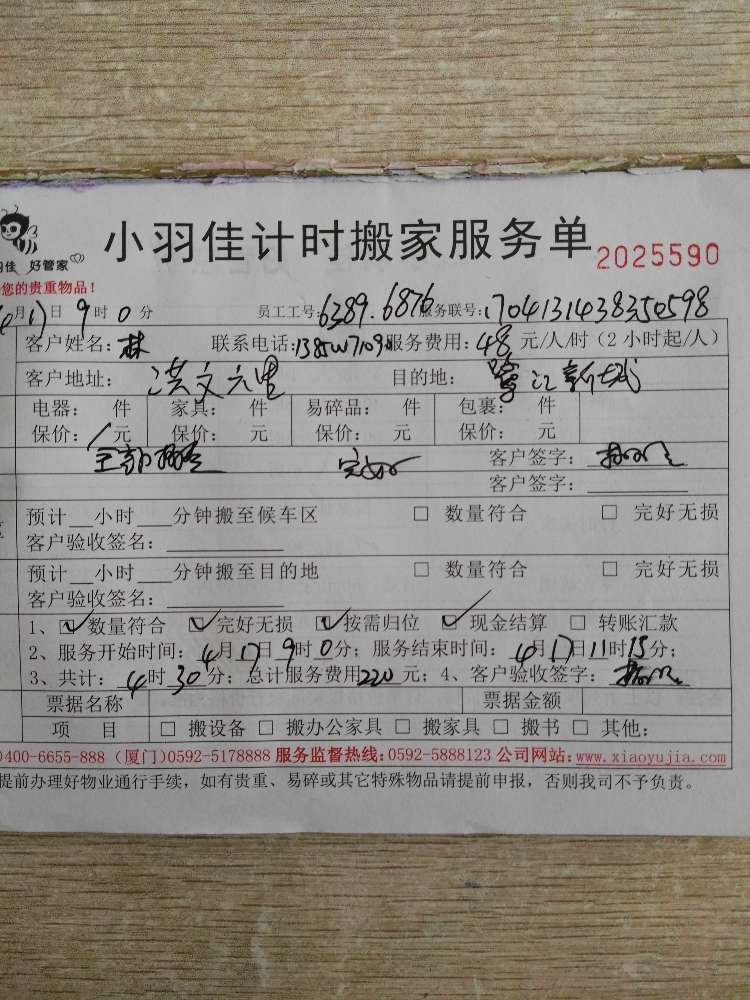 小羽佳计时搬家服务单 2025590
佳 好管家
您的贵重物品！
4月17日9时0分 员工工号：6389.6876 服务联号：1704131438350598
客户姓名：林 联系电话： 服务费用：48元/人/时(2小时起/人)
客户地址：洪文六里 目的地：鹭江新城
电器： 件 家具： 件 易碎品： 件 包裹： 件
保价： 元 保价： 元 保价： 元 保价： 元
全部 完好 客户签字：
客户签字：
预计__小时___分钟搬至候车区 □ 数量符合 □ 完好无损
客户验收签名：
预计__小时___分钟搬至目的地 □ 数量符合 □ 完好无损
客户验收签名：
1、☑数量符合 ☑完好无损 ☑按需归位 ☑现金结算 □ 转账汇款
2、服务开始时间：4月17日9时0分；服务结束时间：4月17日11时15分；
3、共计：4时30分；总计服务费用220元；4、客户验收签字：
票据名称 票据金额
项 目 □ 搬设备 □ 搬办公家具 □ 搬家具 □ 搬书 □ 其他：
400-6655-888 (厦门)0592-5178888 服务监督热线:0592-5888123 公司网站:www.xiaoyujia.com
提前办理好物业通行手续，如有贵重、易碎或其它特殊物品请提前申报，否则我司不予负责。